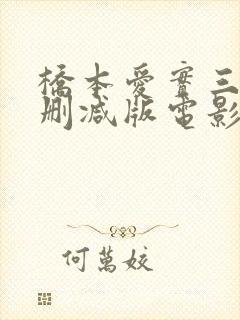 橋本愛實三
删减版電影
何萬姣